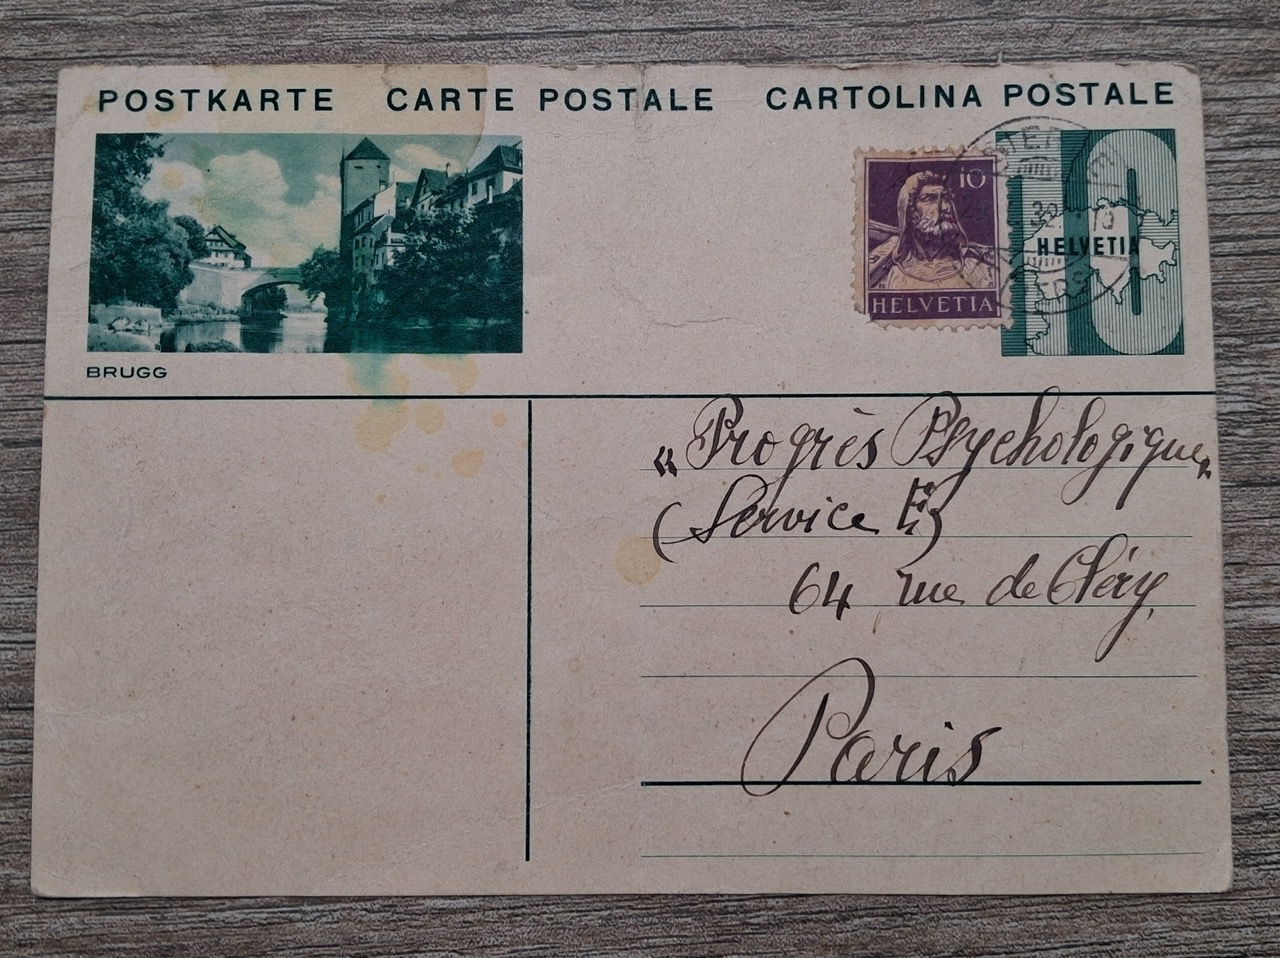 POSTKARTE CARTE POSTALE CARTOLINA POSTALE
10
HELVETIA
10
HELVETIA
BRUGG
« Progrès Psychologique »
(Service E)
64 rue de Cléry,
Paris